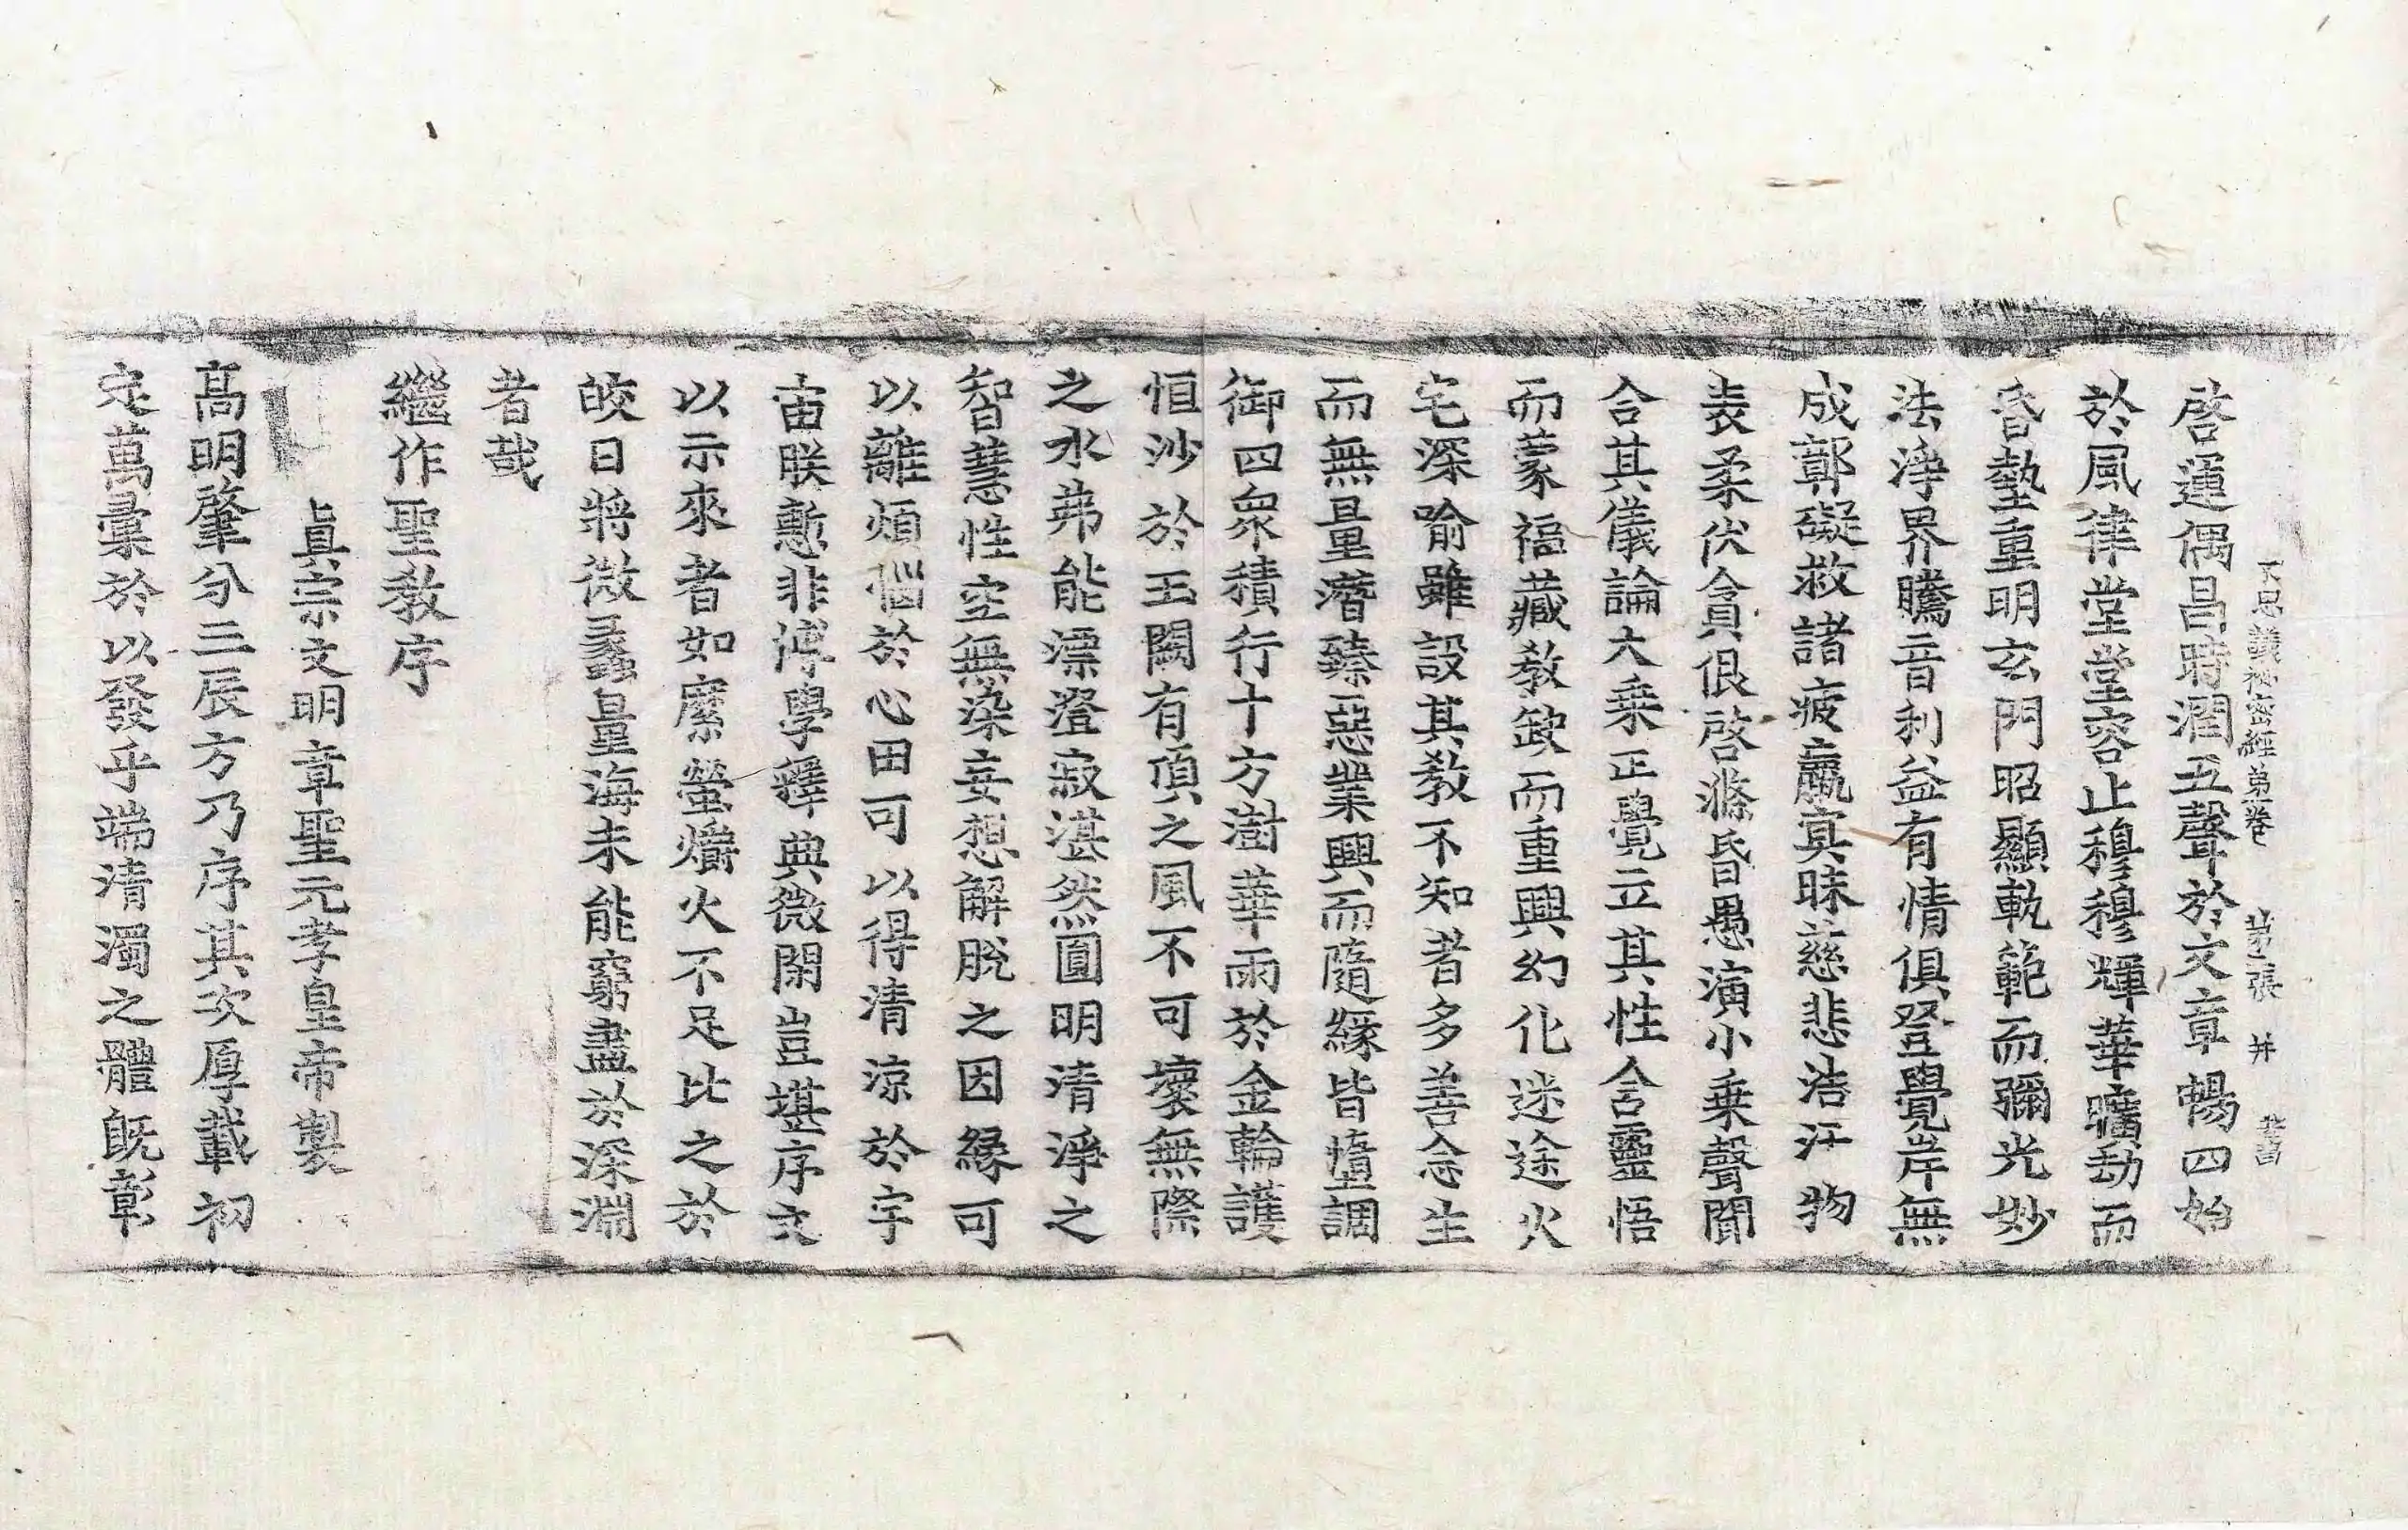 不思議秘密經第一卷 第二張 井 
啓運偶昌時潤五聲於文章暢四始
於風律堂堂容止穆穆輝華曠劫而
昏墊重明玄門昭顯軌範而彌光妙
法淨界騰音利益有情俱登覺岸無
成鄣礙救諸疲羸㝠昧慈悲浩汗物
表柔伏貪佷啓滌昏愚演小乗聲聞
合其儀論大乗正覺立其性含靈悟
而蒙福藏教缺而重興幻化迷途火
宅深喻雖設其教不知者多善念生
而無量潛臻惡業興而隨緣皆墮調
御四衆積行十方澍華雨於金輪護
恒沙於玉闕有頂之風不可壞無際
之水弗能漂澄寂湛然圓明清淨之
智慧性空無染妄想解脫之因緣可
以離煩惱於心田可以得清涼於宇
宙朕慙非博學釋典微閑豈堪序文
以示來者如縻螢爝火不足比之於
皎日將微蠡量海未能窮盡於深淵
者哉
繼作聖教序
真宗文明章聖元孝皇帝製
高明肇分三辰方乃序其次厚載初
定萬彙於以發乎端清濁之體既彰